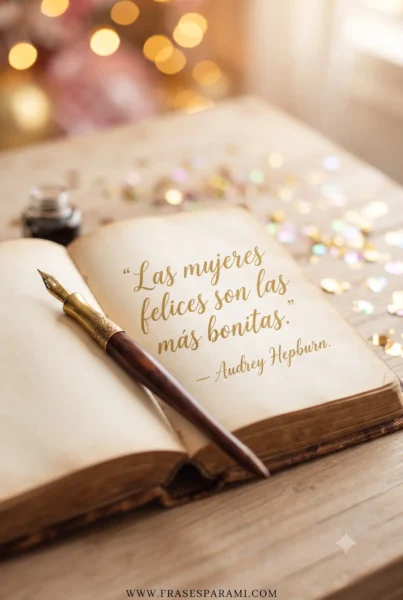 “Las mujeres
felices son las
más bonitas.”
— Audrey Hepburn.
WWW.FRASESPARAMI.COM